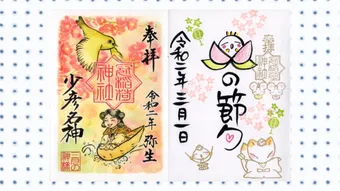 奉拝
令和二年 弥生
少彦名神
の節句
令和二年 三月一日